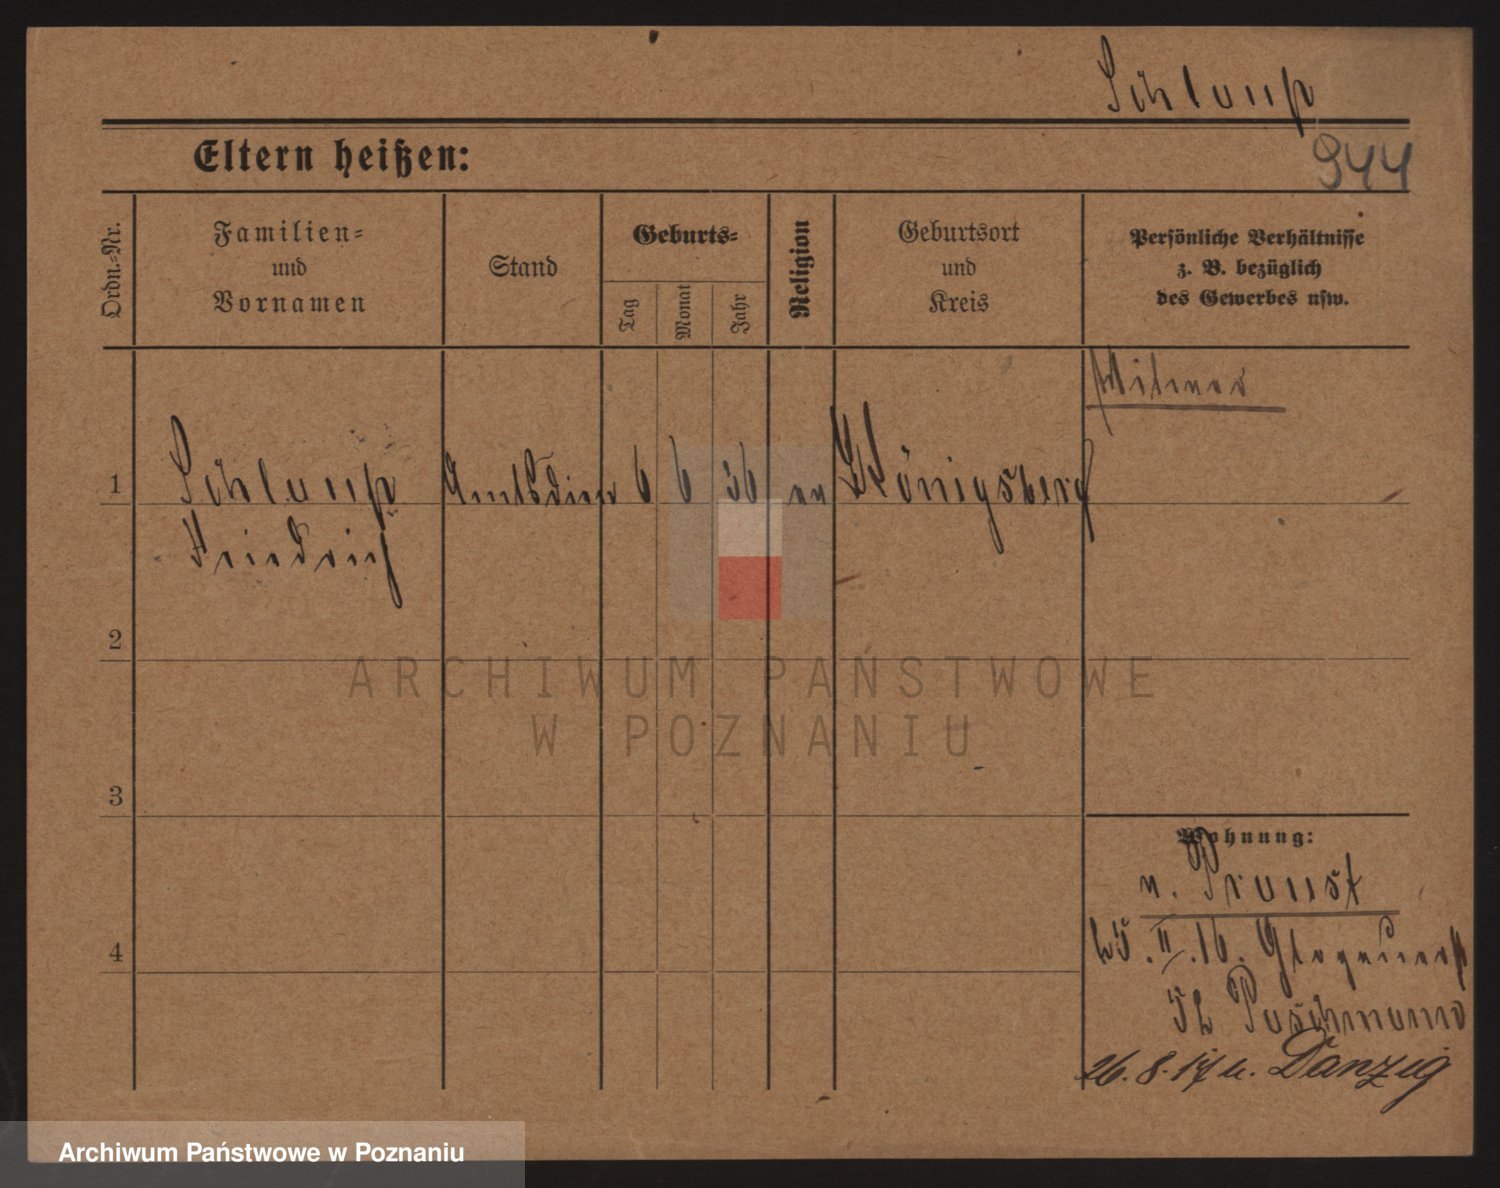 Schlaup
944
Eltern heißen:
Ordn.-Nr.
Familien-
und
Vornamen
Stand
Geburts-
Tag
Monat
Jahr
Religion
Geburtsort
und
Kreis
Persönliche Verhältnisse
z. B. bezüglich
des Gewerbes usw.
Witwer
1
Schlaup
Friedrich
Amtsdien
6
6
36
ev
Königsberg
2
3
4
Wohnung:
n. Praust
25. II. 16. Glogauerst
Puschmann
26. 8. 17 n. Danzig
ARCHIWUM PAŃSTWOWE
W POZNANIU
Archiwum Państwowe w Poznaniu